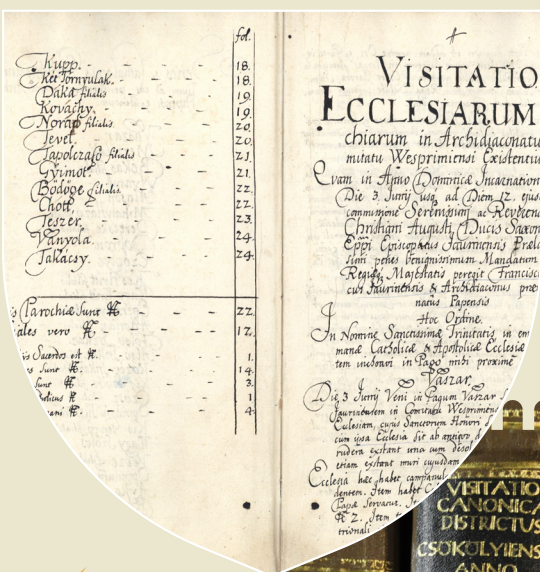 fol.
Kupp. - - - - 18.
Két Tornyulak. - - - 18
Daka filialis - - - 19
Kovachy. - - - - 19.
Norap filialis. - - - 20.
Tevel. - - - - 20.
Tapolczafő filialis - - - 21
Gyimot. - - - - 21.
Bödöge filialis. - - - 22.
Chott. - - - - 22.
Teszer. - - - - 23.
Vanyola. - - - - 24.
Takácsy. - - - - 24.
Parochiæ Sunt - - - 22.
ales vero - - - 12.
is Sacerdos est - - - 1.
es Sunt - - - 14
sunt - - - 3.
- - - 1
- - - 4.
VISITATIO
ECCLESIARUM
chiarum in Archidiaconatu
mitatu Wesprimiensi Existentiu
Quam in Anno Dominicæ Incarnation
Die 3. Junij usq ad Diem 12. ejus
Serenissimi ac Reverend
Christiani Augusti Ducis Saxon
Eppi Episcopatus Jaurinensis
simi penes benignissimum Mandatum
Regiæ Majestatis peregit Francisc
cus Jaurinensis & Archidiaconus
natus Papensis
Hoc Ordine.
In Nomine Sanctissimæ Trinitatis in
manæ Catholicæ & Apostolicæ Ecclesiæ
tem inchoavi in Pago mihi proximè
Vaszar
Die 3 Junij Veni in Pagum Vaszar
Jauriensem in Comitatu Wesprimens
Ecclesiam, cujus Sanctorum Honori
cum ipsa Ecclesia sit ab antiquo
rudera extant una cum desol
etiam extant muri cujusdam
Ecclesia hæc habet campanul
dentem. Item habet
Papæ Servatur.
2. Item
trionali
VISITATIO
CANONICA
DISTRICTUS
CSÖKÖLYIENS
ANNO